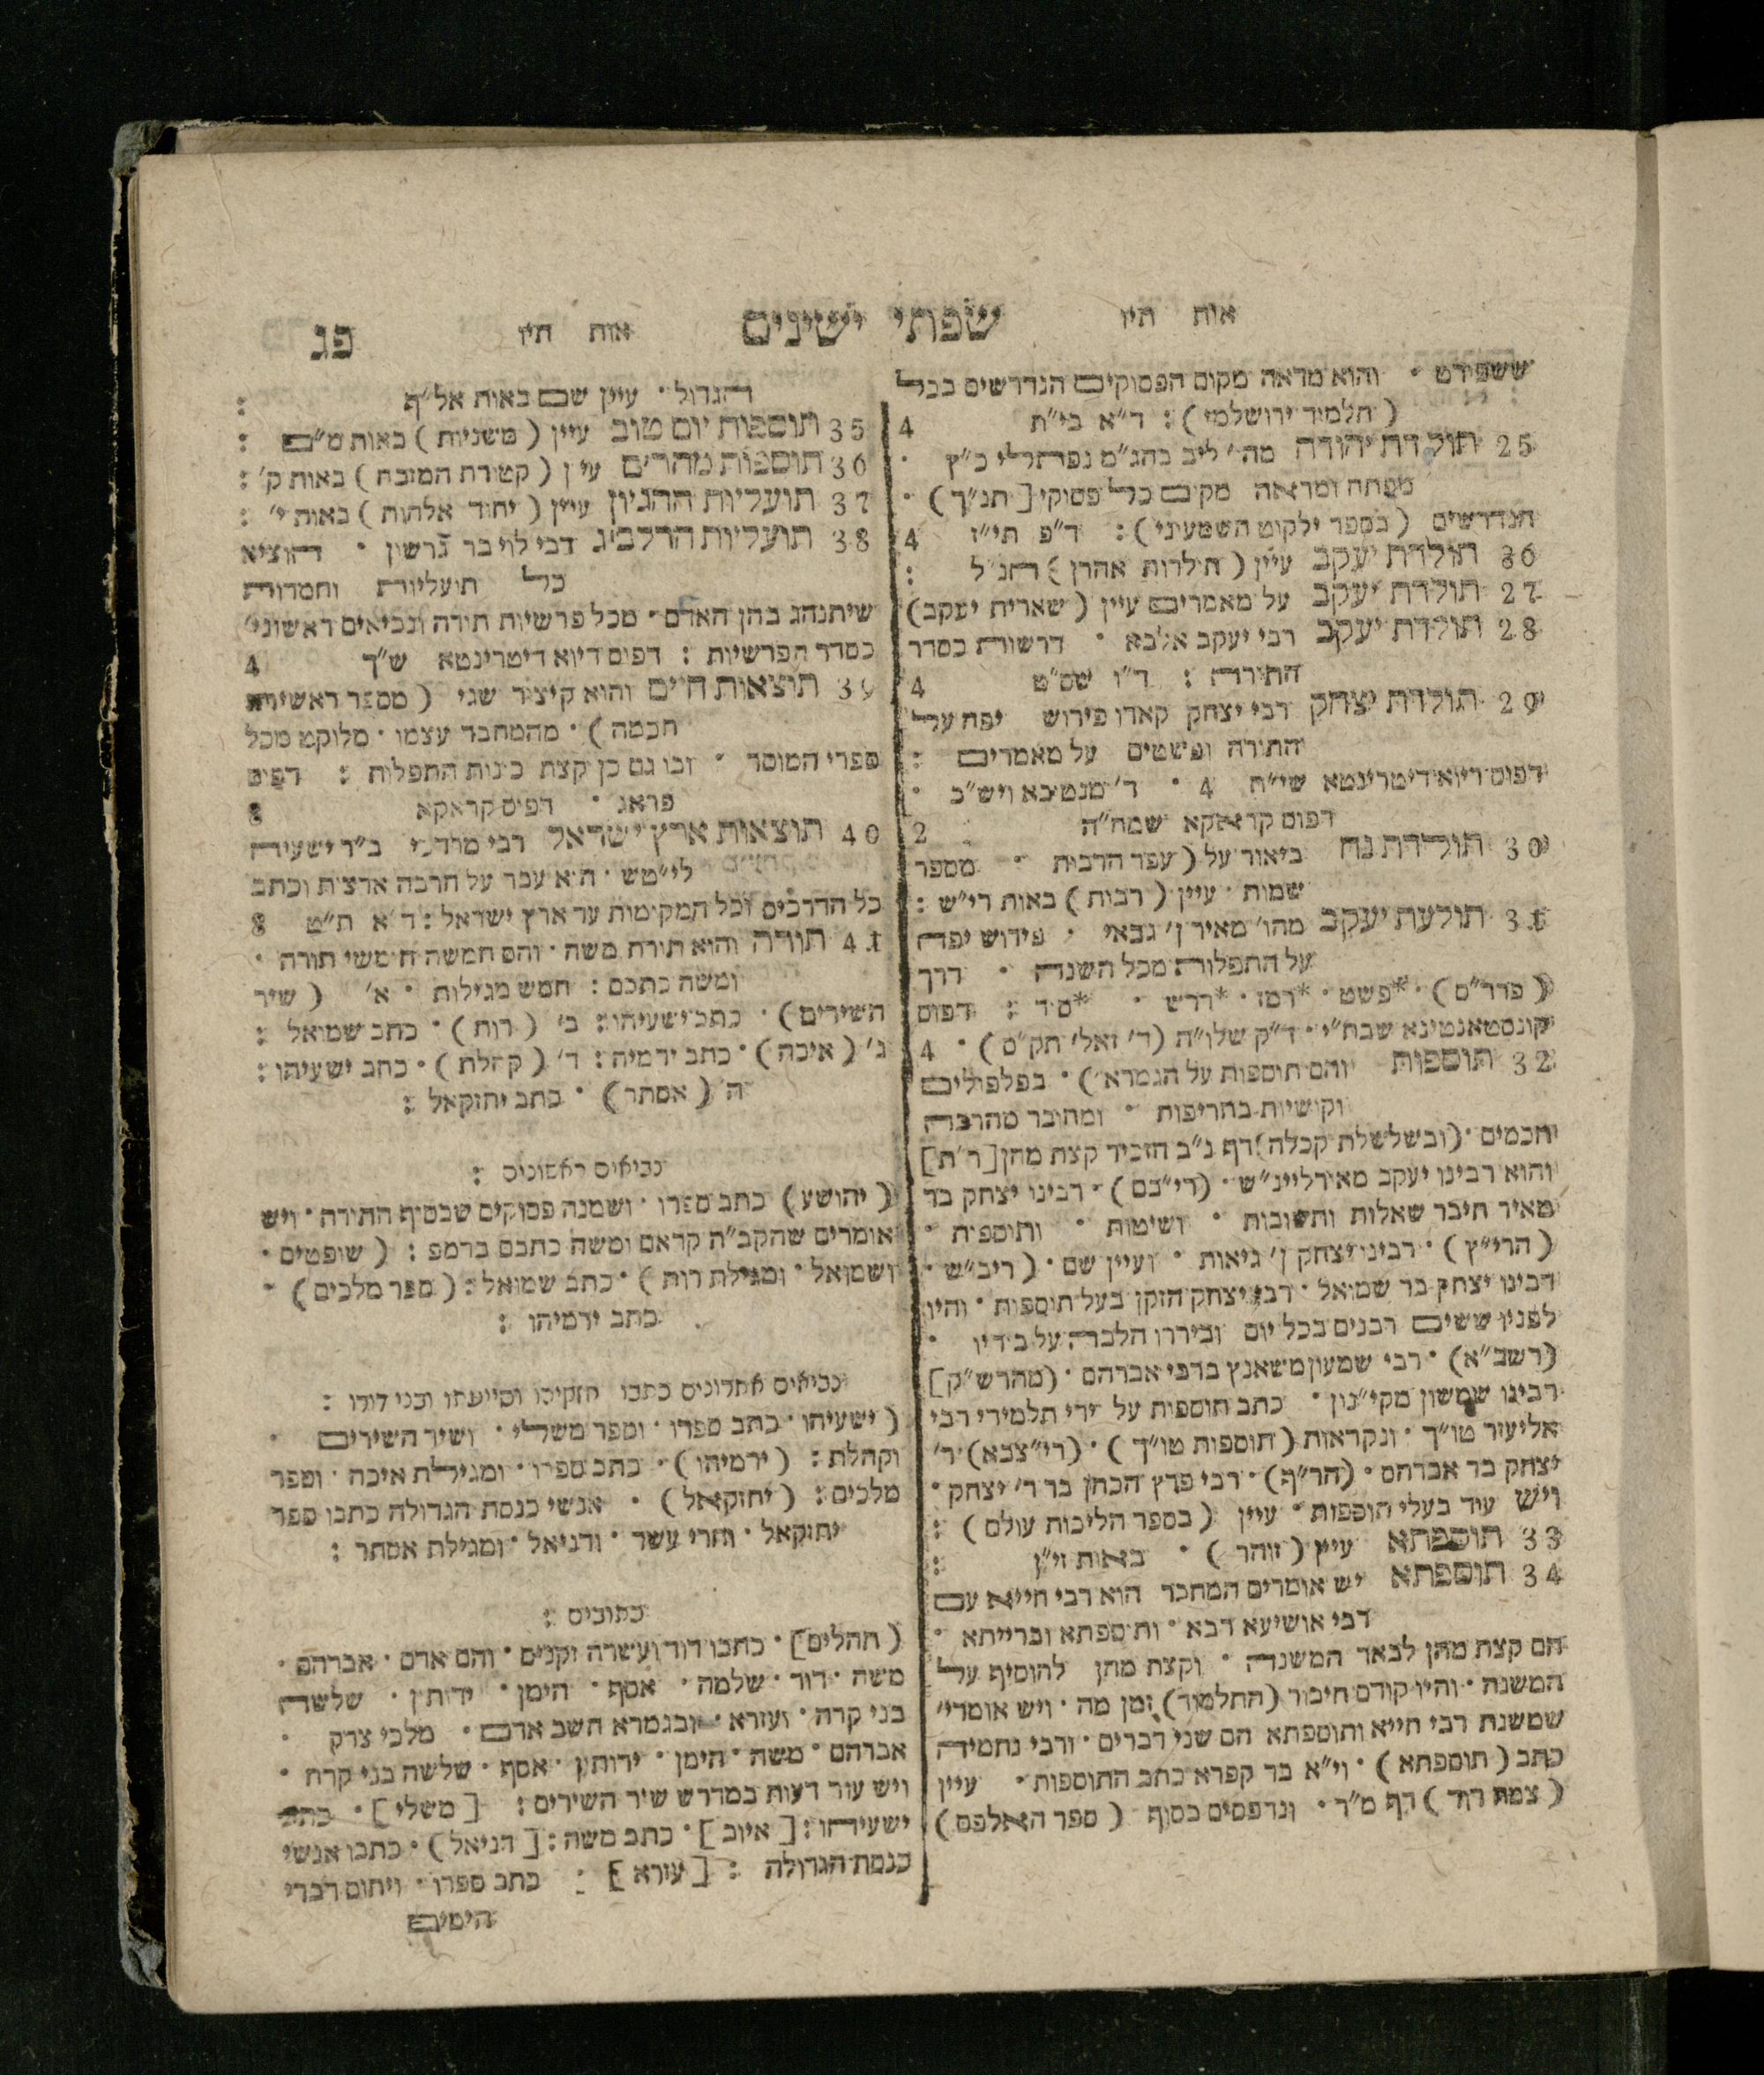 אות תיו שפתי ישינים אות תיו פג
והוא מראה מקום הפסוקים הנדרשים בכל
(תלמיד ירושלמי) : ד״א בי״ת 4
25 תולדת יהודה מה׳ ליב בהג״מ נפתרלי כ״ץ •
מפתח ומראה מקום כל פסוקי [תנ״ך) •
הנדרשים (בספר ילקוט השמעוני) : ד״פ תי״ז 4
36 תולדת יעקב עיין (תולדות אהרן) הנ״ל :
27 תולדת יעקב על מאמרים עיין (שארית יעקב)
28 תולדת יעקב רבי יעקב אלבא • דרשות כסדר
התורה : ד״ו שס״ט 4
29 תולדת יצחק רבי יצחק קארו פירוש יפה על
התורה ופשטים על מאמרים :
דפוס ריוא דיטרינטא שי״ח 4 • ד׳ מנטובא ויש״כ •
דפוס קראקא שמח״ה 2
30 תולדת נח ביאור על (עפר הרבות • מספר
שמות • עיין (רבות) באות רי״ש :
31 תולעת יעקב מהו׳ מאיר ן׳ גבאי • פירוש יפה
על התפלות מכל השנה • דרך
(פרד״ס) • *פשט • *רמז • *דרש • *סוד : דפוס
קונסטאנטינא שבח״י • ד״ק שלו״ה (ד׳ זאל׳ תק״ס) • 4
32 תוספות והם תוספות על הגמרא׳) • בפלפולים
וקושיות בחריפות • ומחובר מהרבה
חכמים • (ובשלשלת קבלה) דף נ״ב הזכיר קצת מהן [ר״ת]
והוא רבינו יעקב מאורליינ״ש • (רי״בם) • רבינו יצחק בר
מאיר חיבר שאלות ותשובות • ושיטות • ותוספות •
(הרי״ץ) • רבינו יצחק ן׳ גיאות • ועיין שם • (ריב״ש •
רבינו יצחק בר שמואל • רבי יצחק הזקן בעל תוספות • והיו
לפניו ששים רבנים בכל יום וביררו הלכה על בוריו •
(רשב״א) • רבי שמעון משאנץ ברבי אברהם • (מהרש״ק]
רבינו שמשון מקי״נון • כתב תוספות על ידי תלמידי רבי
אליעזר טו״ך • ונקראות (תוספות טו״ך) • (רי״צבא) ר׳
יצחק בר אברהם • (הר״ף) • רבי פרץ הכהן בר ר׳ יצחק •
ויש עוד בעלי תוספות • עיין (בספר הליכות עולם) :
33 תוספתא עיין (זוהר) • באות זי״ן :
34 תוספתא יש אומרים המחבר הוא רבי חייא עם
רבי אושיעא רבא • ותוספתא וברייתא •
הם קצת מהן לבאר המשנה • וקצת מהן להוסיף על
המשנה • והיו קודם חיבור (התלמוד) זמן מה • ויש אומרי׳
שמשנת רבי חייא ותוספתא הם שני דברים • ורבי נחמיה
כתב (תוספתא) • וי״א בר קפרא כתב התוספות • עיין
(צמח דוד) דף מ״ד • ונדפסים בסוף (ספר האלפס)
הגדול • עיין שם באות אל״ף :
35 תוספות יום טוב עיין (משניות) באות מ״ם :
36 תוספות מהר״ם עיין (קטורת המזבח) באות ק׳ :
37 תועליות ההגיון עיין (יחוד אלהות) באות י׳ :
38 תועליות הרלב״ג רבי לוי בר גרשון • הוציא
כל תועליות וחמדות
שיתנהג בהן האדם • מכל פרשיות תורה ונביאים ראשוני׳
כסדר הפרשיות : דפוס ריוא דיטרינטא ש״ך 4
39 תוצאות חיים והוא קיצור שני (מספר ראשית
חכמה) • מהמחבר עצמו • מלוקט מכל
ספרי המוסר • ובו גם כן קצת כוונות התפלות : דפוס
פראג • דפוס קראקא 8
40 תוצאות ארץ ישראל רבי מרדכי ב״ר ישעיה
לי״טש • הוא עבר על הרבה ארצות וכתב
כל הדרכים וכל המקומות עד ארץ ישראל : ד״א ת״ט 8
41 תורה והוא תורת משה • והם חמשה חומשי תורה •
ומשה כתבם : חמש מגילות • א׳ (שיר
השירים) • כתב ישעיהו : ב׳ (רות) • כתב שמואל :
ג׳ (איכה) • כתב ירמיה : ד׳ (קהלת) • כתב ישעיהו :
ה׳ (אסתר) • כתב יחזקאל :
נביאים ראשונים :
(יהושע) כתב ספרו • ושמנה פסוקים שבסוף התורה • ויש
אומרים שהקב״ה קראם ומשה כתבם ברמפ : (שופטים •
ושמואל • ומגילת רות) • כתב שמואל : (ספר מלכים) •
כתב ירמיהו :
נביאים אחרונים כתבו חזקיהו וסייעתו ובני דורו :
(ישעיהו • כתב ספרו • וספר משלי • ושיר השירים •
וקהלת : (ירמיהו) • כתב ספרו • ומגילת איכה • וספר
מלכים : (יחזקאל) • אנשי כנסת הגדולה כתבו ספר
יחזקאל • ותרי עשר • ודניאל • ומגילת אסתר :
כתובים :
(תהלים] • כתבו דוד ועשרה זקנים • והם אדם • אברהם •
משה • דוד • שלמה • אסף • הימן • ידותון • שלשה
בני קרח • ועזרא • ובגמרא חשב אדם • מלכי צדק •
אברהם • משה • הימן • ידותון • אסף • שלשה בני קרח •
ויש עוד דעות במדרש שיר השירים : [משלי] • כתב
ישעיהו : [איוב] • כתב משה : [דניאל) • כתבו אנשי
כנסת הגדולה : [עזרא] : כתב ספרו • ויחום דברי
הימים